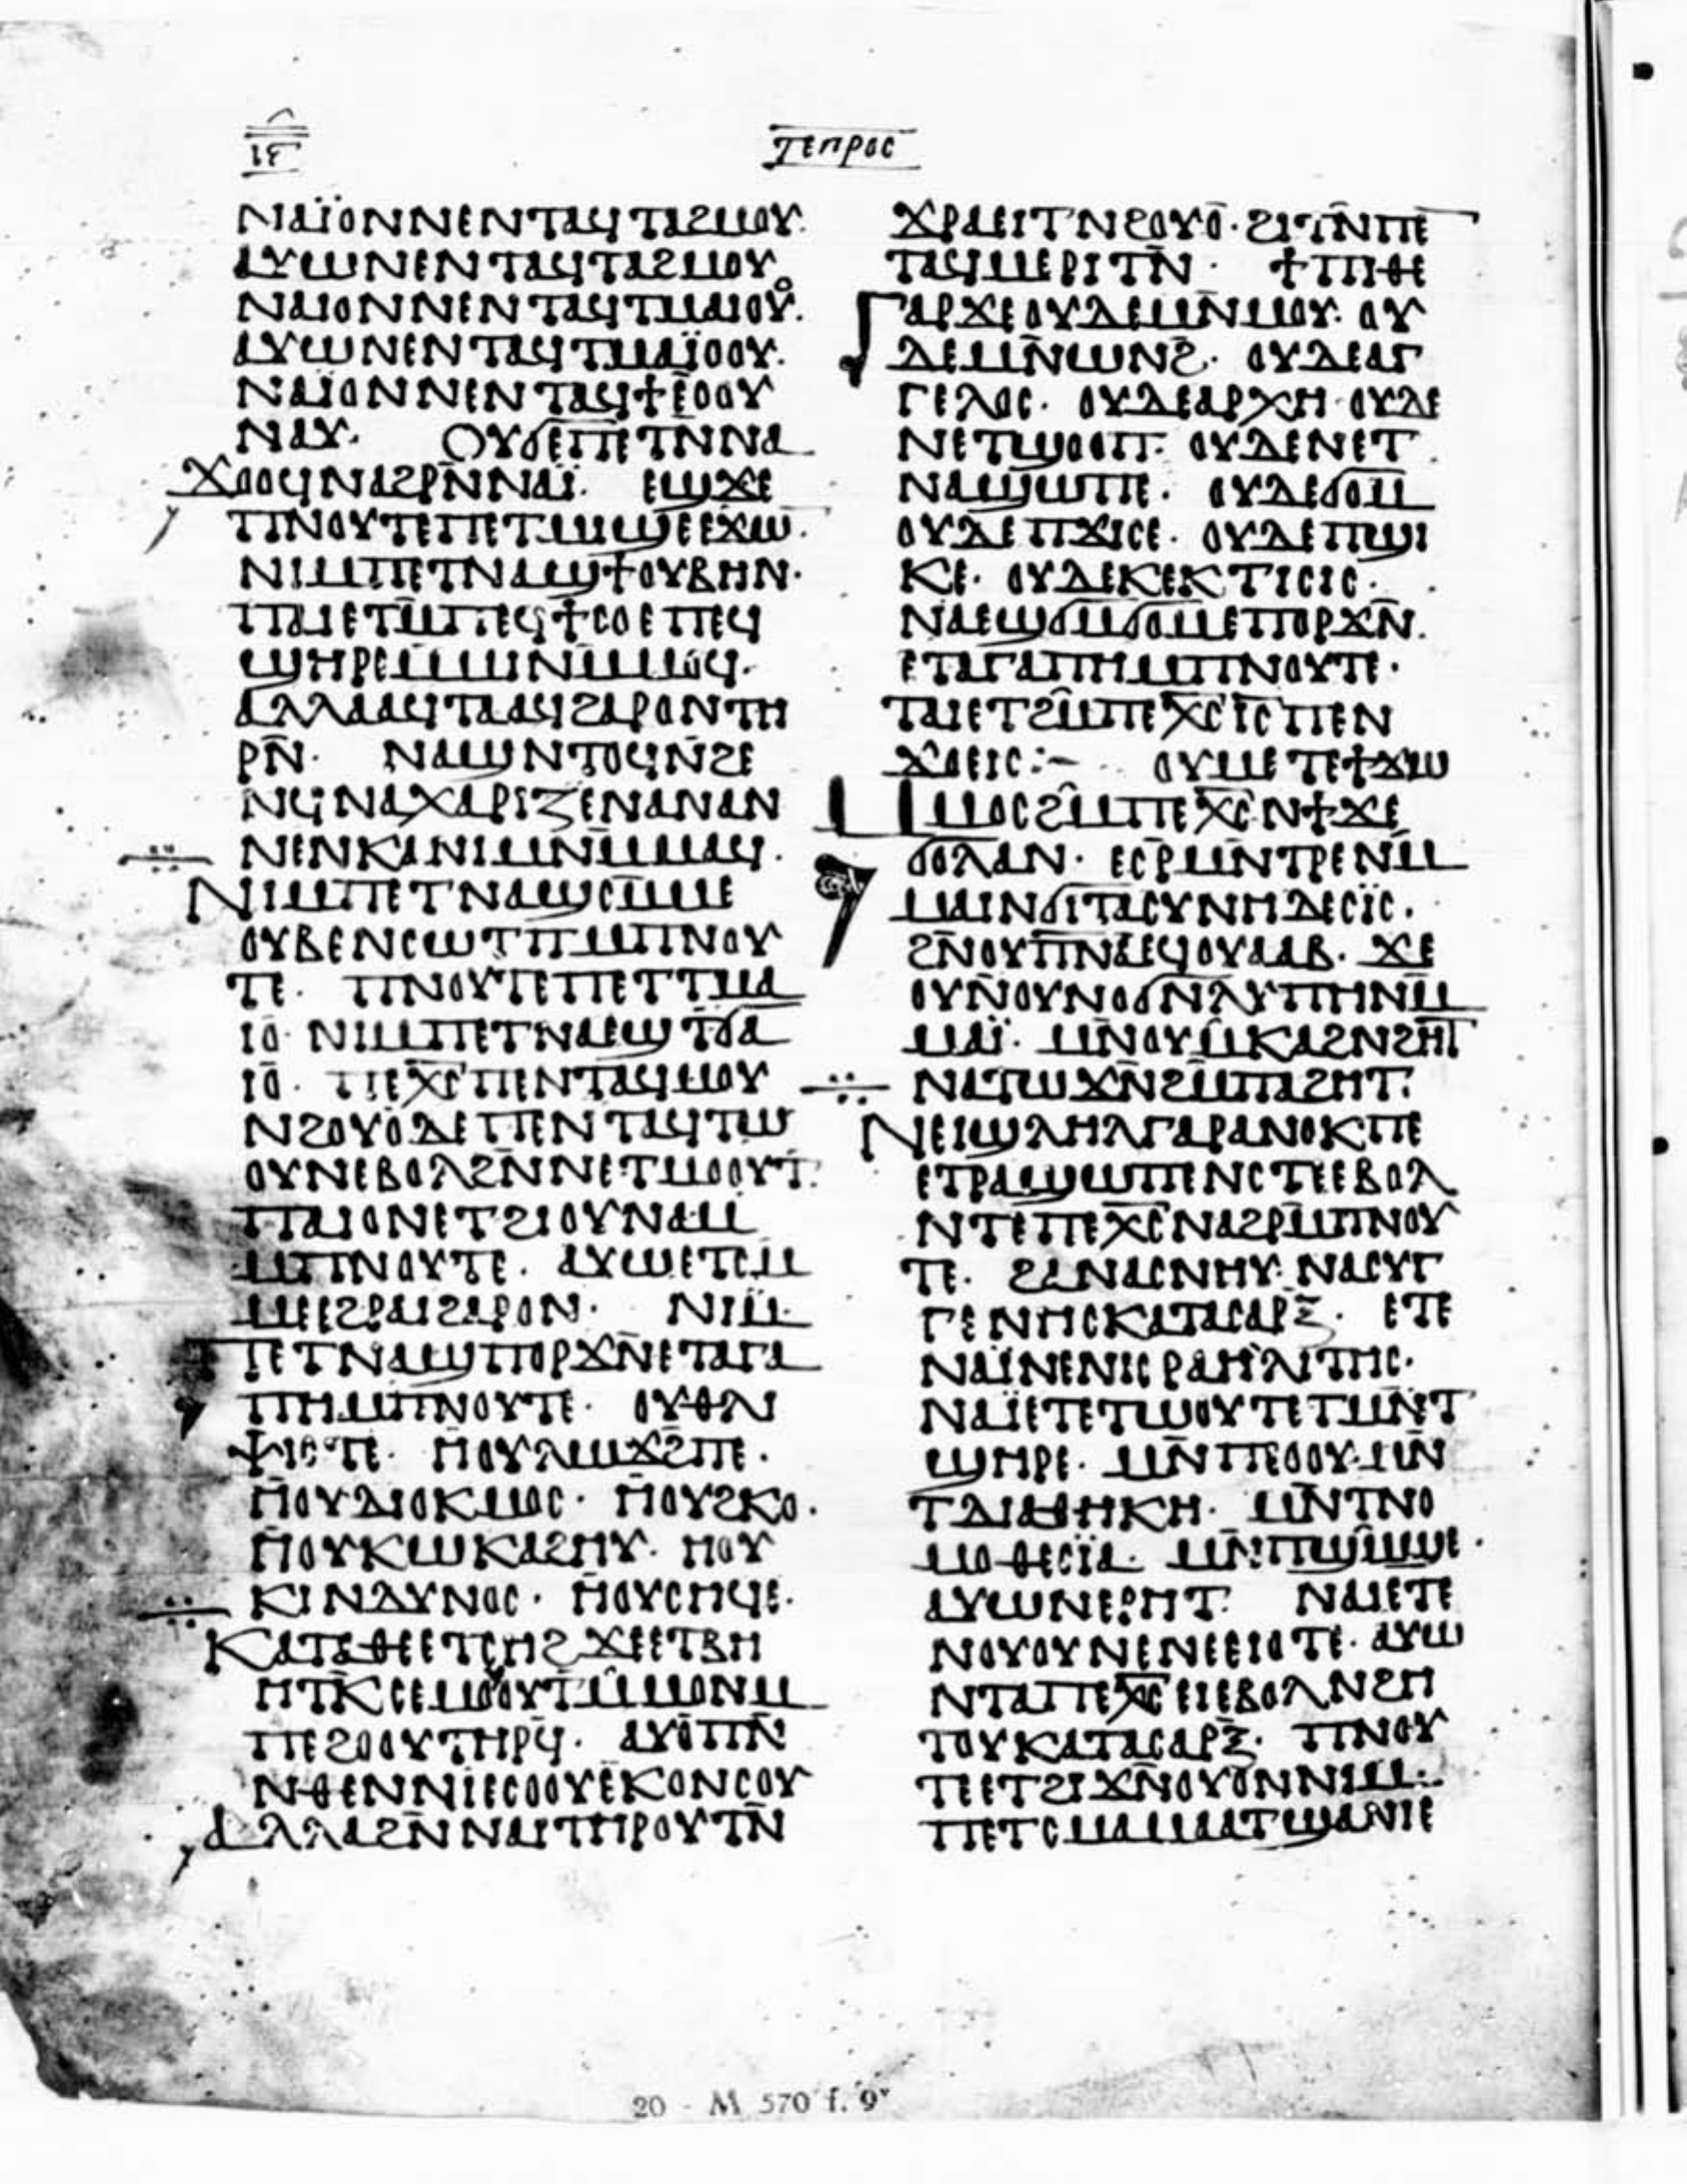 ⲓ̅ⲋ̅
ⲧⲉⲡⲣⲟⲥ
ⲛⲁⲓ̈ⲟⲛⲛⲉⲛⲧⲁϥⲧⲁϩⲙⲟⲩ.
ⲁⲩⲱⲛⲉⲛⲧⲁϥⲧⲁϩⲙⲟⲩ
ⲛⲁⲓⲟⲛⲛⲉⲛⲧⲁϥⲧⲙⲁⲓⲟⲟⲩ.
ⲁⲩⲱⲛⲉⲛⲧⲁϥⲧⲙⲁⲓ̈ⲟⲟⲩ.
ⲛⲁⲓ̈ⲟⲛⲛⲉⲛⲧⲁϥϯⲉ̅ⲟⲟⲩ
ⲛⲁⲩ. ⲟⲩϭⲉⲡⲉⲧⲛ̅ⲛⲁ
ϫⲟⲟϥⲛⲁϩⲣⲛ̅ⲛⲁⲓ̈. ⲉϣϫⲉ
ⲡⲛⲟⲩⲧⲉⲡⲉⲧⲙⲓϣⲉⲉϫⲱ.
ⲛⲓⲙⲡⲉⲧⲛⲁϣϯⲟⲩⲃⲏⲛ.
ⲡⲁⲓⲉⲧⲙ̅ⲡⲉϥϯⲥⲟⲉⲡⲉϥ
ϣⲏⲣⲉⲙ̅ⲙⲓⲛⲙ̅ⲙⲟϥ.
ⲁⲗⲗⲁⲁϥⲧⲁⲁϥϩⲁⲣⲟⲛⲧⲏ
ⲣⲛ̅. ⲛⲁϣⲛⲧⲟϥⲛ̅ϩⲉ
ⲛϥⲛⲁⲭⲁⲣⲓⲍⲉⲛⲁⲛⲁⲛ
ⲛⲉⲛⲕⲁⲛⲓⲙⲛⲙ̅ⲙⲁϥ.
ⲛⲓⲙⲡⲉⲧⲛⲁϣⲥⲙ̅ⲙⲉ
ⲟⲩⲃⲉⲛⲥⲱⲧⲡⲙ̅ⲡⲛⲟⲩ
ⲧⲉ. ⲡⲛⲟⲩⲧⲉⲡⲉⲧⲧⲙⲁ
ⲓⲟ̅. ⲛⲓⲙⲡⲉⲧⲛⲁⲉϣⲧ̅ϭⲁ
ⲓⲟ̅. ⲡⲉⲭ̅ⲥ̅ⲡⲉⲛⲧⲁϥⲙⲟⲩ
ⲛϩⲟⲩⲟ̅ⲇⲉⲡⲉⲛⲧⲁϥⲧⲱ
ⲟⲩⲛⲉⲃⲟⲗϩⲛ̅ⲛⲉⲧⲙⲟⲟⲩⲧ.
ⲡⲁⲓⲟⲛⲉⲧϩⲓⲟⲩⲛⲁⲙ
ⲙ̅ⲡⲛⲟⲩⲧⲉ. ⲁⲩⲱⲉⲧⲥⲙ̅
ⲙⲉⲉϩⲣⲁⲓϩⲁⲣⲟⲛ. ⲛⲓⲙ
ⲡⲉⲧⲛⲁϣⲡⲟⲣϫⲛ̅ⲉⲧⲁⲅⲁ
ⲡⲏⲙ̅ⲡⲛⲟⲩⲧⲉ. ⲟⲩⲑⲗⲓ
ⲯⲓⲥⲧⲉ. ⲏ̅ⲟⲩⲗⲱϫϩ̅ⲡⲉ.
ⲏ̅ⲟⲩⲇⲓⲟⲕⲙⲟⲥ. ⲏ̅ⲟⲩϩⲕⲟ.
ⲏ̅ⲟⲩⲕⲱⲕⲁϩⲏⲩ. ⲏⲟⲩ
ⲕⲓⲛⲇⲩⲛⲟⲥ. ⲏ̅ⲟⲩⲥⲏϥⲉ.
ⲕⲁⲧⲁⲑⲉⲉⲧⲥⲏϩϫⲉⲉⲧⲃⲏ
ⲏⲧⲕ̅ⲥⲉⲙⲟⲟⲩⲧⲙ̅ⲙⲟⲛⲙ
ⲡⲉϩⲟⲟⲩⲧⲏⲣϥ̅. ⲁⲩⲟ̅ⲡⲛ̅
ⲛⲑⲉⲛⲛⲓⲉⲥⲟⲟⲩⲉ̅ⲕⲟⲛⲥⲟⲩ
ⲁⲗⲗⲁϩⲛ̅ⲛⲁⲓⲧⲏⲣⲟⲩⲧⲛ̅
ϫⲣⲁⲉⲓⲧⲛϩⲟⲩⲟ̅. ϩⲓⲧⲛ̅ⲡⲉ
ⲧⲁϥⲙⲉⲣⲓⲧⲛ̅. ϯⲡⲓⲑⲉ
ⲅⲁⲣϫⲉⲟⲩⲇⲉⲙⲛ̅ⲙⲟⲩ. ⲟⲩ
ⲇⲉⲙⲛ̅ⲱⲛϩ̅. ⲟⲩⲇⲉⲁⲅ
ⲅⲉⲗⲟⲥ. ⲟⲩⲇⲉⲁⲣⲭⲏ. ⲟⲩⲇⲉ
ⲛⲉⲧϣⲟⲟⲡ. ⲟⲩⲇⲉⲛⲉⲧ
ⲛⲁϣⲱⲡⲉ. ⲟⲩⲇⲉϭⲟⲙ
ⲟⲩⲇⲉⲡϫⲓⲥⲉ. ⲟⲩⲇⲉⲡϣⲓ
ⲕⲉ. ⲟⲩⲇⲉⲕⲉⲕⲧⲓⲥⲓⲥ.
ⲛⲁⲉϣϭⲙϭⲟⲙⲉⲡⲟⲣϫⲛ̅.
ⲉⲧⲁⲅⲁⲡⲏⲙ̅ⲡⲛⲟⲩⲧⲉ.
ⲧⲁⲓⲉⲧϩⲙ̅ⲡⲉⲭ̅ⲥ̅ⲓ̅ⲥ̅ⲡⲉⲛ
ϫⲟⲉⲓⲥ:– ⲟⲩⲙⲉⲧⲉϯϫⲱ
ⲙ̅ⲙⲟⲥϩⲙ̅ⲡⲉⲭ̅ⲥ̅ⲛϯϫⲉ
ϭⲟⲗⲁⲛ. ⲉⲥⲣⲙⲛ̅ⲧⲣⲉⲛⲙ̅
ⲙⲁⲓⲛϭⲓⲧⲁⲥⲩⲛⲏⲇⲉⲥⲓ̈ⲥ.
ϩⲛ̅ⲟⲩⲡ̅ⲛ̅ⲁ̅ⲉϥⲟⲩⲁⲁⲃ. ϫⲉ
ⲟⲩⲛ̅ⲟⲩⲛⲟϭⲛ̅ⲗⲩⲡⲏⲛⲙ̅
ⲙⲁⲓ̈. ⲙⲛ̅ⲟⲩⲙ̅ⲕⲁϩⲛϩⲏⲧ
ⲛⲁⲧⲱϫⲛ̅ϩⲙ̅ⲡⲁϩⲏⲧ.
ⲛⲉⲓϣⲗⲏⲗⲅⲁⲣⲁⲛⲟⲕⲡⲉ
ⲉⲧⲣⲁϣⲱⲡⲉⲛⲥⲧⲉⲉⲃⲟⲗ
ⲛⲧⲉⲡⲉⲭ̅ⲥ̅ⲛⲁϩⲣⲙ̅ⲡⲛⲟⲩ
ⲧⲉ. ϩⲁⲛⲁⲥⲛⲏⲩ. ⲛⲁⲥⲩⲅ
ⲅⲉⲛⲏⲥⲕⲁⲧⲁⲥⲁⲣⲝ. ⲉⲧⲉ
ⲛⲁⲓ̈ⲛⲉⲛⲓⲥⲣⲁⲏⲗⲓⲧⲏⲥ.
ⲛⲁⲓ̈ⲉⲧⲉⲧⲱⲟⲩⲧⲉⲧⲙⲛ̅ⲧ
ϣⲏⲣⲉ. ⲙⲛ̅ⲡⲉⲟⲟⲩ. ⲙⲛ̅
ⲧⲇⲓⲁⲑⲏⲕⲏ. ⲙⲛ̅ⲧⲛⲟ
ⲙⲟⲑⲉⲥⲓ̈ⲁ. ⲙⲛ̅ⲡϣⲙ̅ϣⲉ.
ⲁⲩⲱⲛⲉⲣⲏⲧ. ⲛⲁⲓⲉⲧⲉ
ⲛⲟⲩⲟⲩⲛⲉⲛⲉⲉⲓⲟⲧⲉ. ⲁⲩⲱ
ⲛⲧⲁⲡⲉⲭ̅ⲥ̅ⲉⲓⲉⲃⲟⲗⲛϩⲏ
ⲧⲟⲩⲕⲁⲧⲁⲥⲁⲣⲝ. ⲡⲛⲟⲩ
ⲧⲉⲉⲧϩⲓϫⲛ̅ⲟⲩⲟⲛⲛⲓⲙ.
ⲡⲉⲧⲥⲙⲁⲙⲁⲁⲧϣⲁⲛⲓⲉ
20 - M 570 f. 9ᵛ